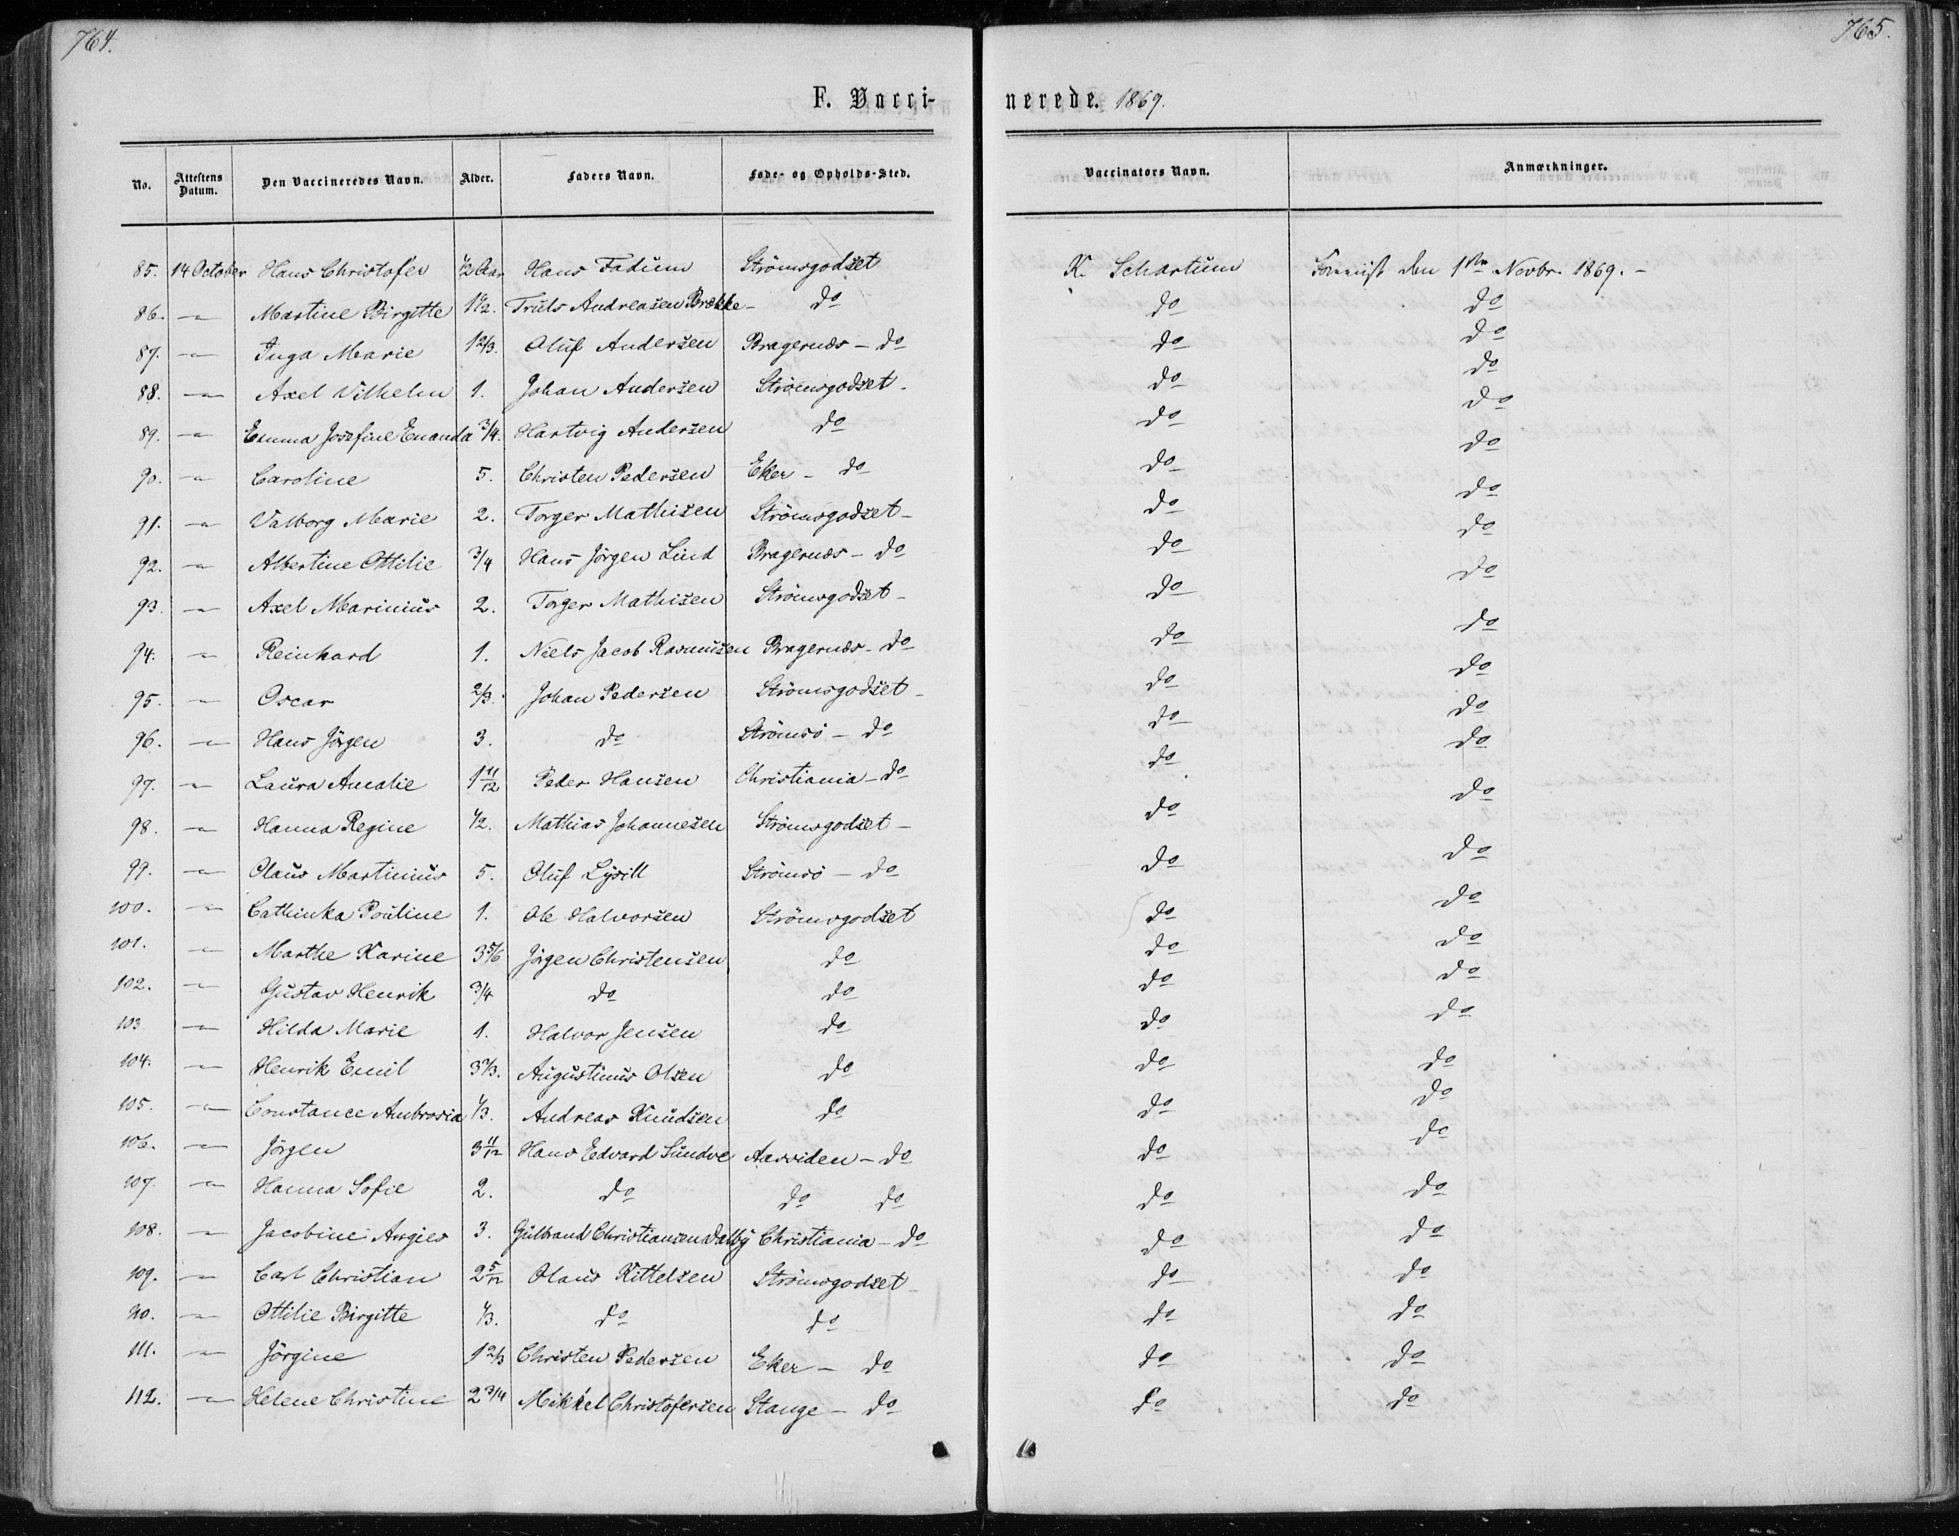 764.
765.
F. Vaccinerede. 1869.
No. Attestens Datum. Den Vaccineredes Navn. Alder. Faders Navn. Føde- og Opholds-Sted. Vaccinators Navn. Anmærkninger.
85. 14 October Hans Christofer 1/2 Aar Hans Fadum Strömsgodset K. Schartum den 1ste Novbr. 1869. -
86. -"- Martine Birgitte 1 1/2. Truls Andreasen Brekke - do do do
87. -"- Inga Marie 1 2/3. Oluf Andersen Bragernæs - do do do
88. -"- Axel Vilhelm 1. Johan Andersen Strömsgodset - do do
89. -"- Emma Josefine Enanda 3/4. Hartvig Andersen do do do
90. -"- Caroline 5. Christen Pedersen Eker - do do do
91. -"- Valborg Marie 2. Torger Mathisen Strömsgodset - do do
92. -"- Albertine Ottilie 3/4 Hans Jörgen Lind Bragernæs - do do do
93. -"- Axel Marinius 2. Torger Mathisen Strömsgodset - do do
94. -"- Reinhard 1. Niels Jacob Rasmusen Bragernæs - do do do
95. -"- Oscar 2/3. Johan Pedersen Strömsgodset - do do
96. -"- Hans Jörgen 3. do Strömsö - do do do
97. -"- Laura Amalie 1 11/12 Peder Hansen Christiania - do do do
98. -"- Hanna Regine 1/2. Mathias Johannesen Strömsgodset - do do
99. -"- Olaus Martinius 5. Oluf Lysill Strömsö - do do do
100. -"- Cathinka Pouline 1. Ole Halvorsen Strömsgodset do do
101. -"- Marthe Karine 3 5/6 Jörgen Christensen do do do
102. -"- Gustav Henrik 3/4 do do do do
103 -"- Hilda Marie 1. Halvor Jensen do do do
104. -"- Henrik Emil 3 1/3. Augustinus Olsen do do do
105. -"- Constance Ambrosia 1/3. Andreas Knudsen do do do
106. -"- Jörgen 3 11/12 Hans Edvard Sundve Aasviden - do do do
107. -"- Hanna Sofie 2. do do do do do
108. -"- Jacobine Aagies 3. Gulbrand Christiansen Dalby Christiania - do do do
109. -"- Carl Christian 2 5/12 Olaus Kittelsen Strömsgodset - do do
110. -"- Ottilie Birgitte 1/3. do do do do
111. -"- Jörgine 1 2/3 Christen Pedersen Eker - do do do
112. -"- Helene Christine 2 3/4 Mikkel Christofersen Stange - do do do